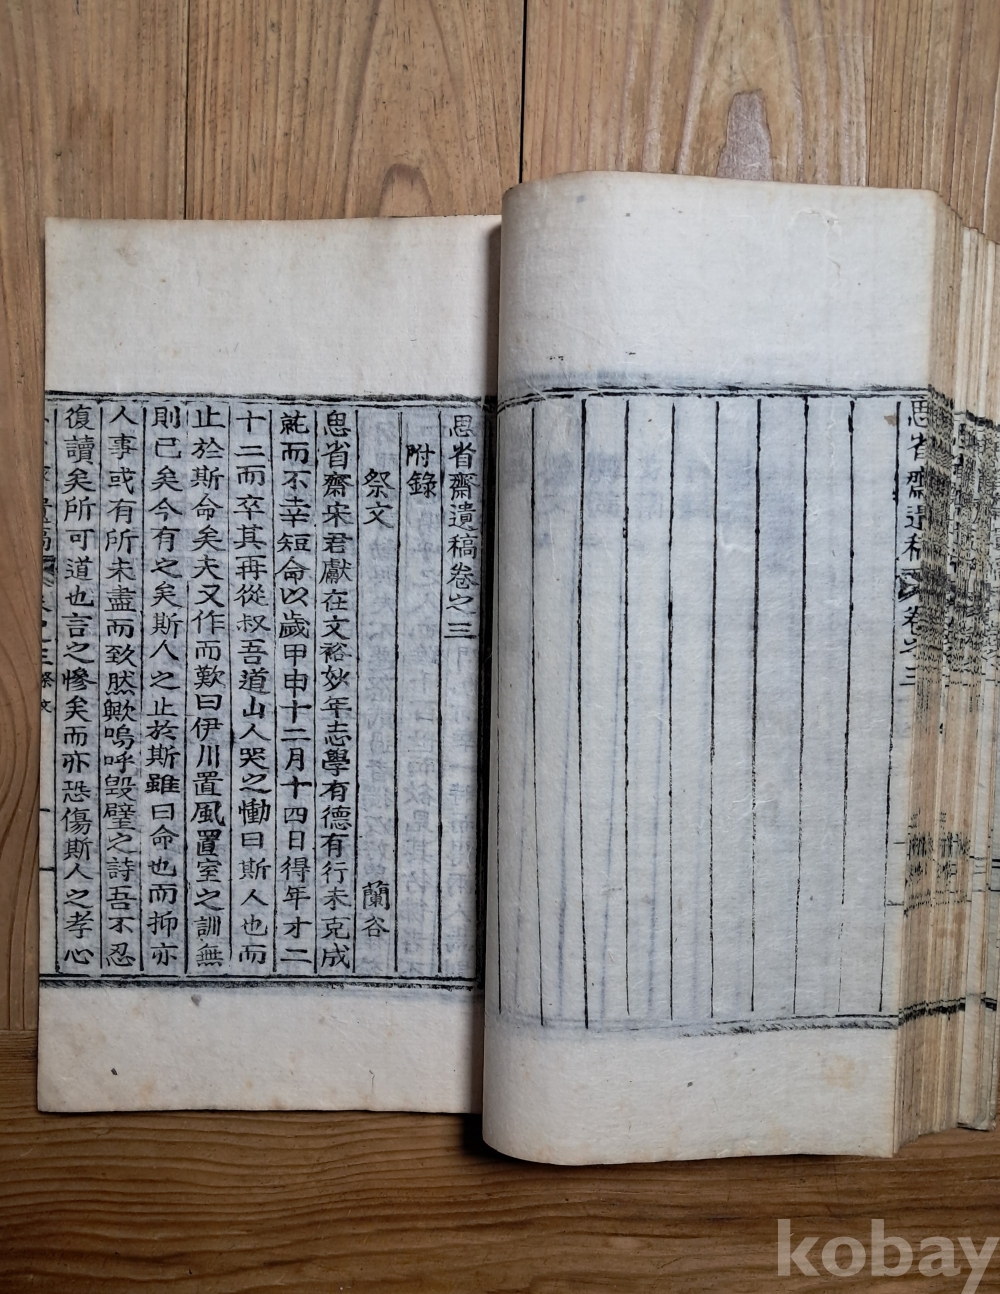 思省齋遺稿卷之三
思省齋遺稿卷之三
附錄
祭文
蘭谷
思省齋宋君獻在文裕妙年志學有德有行未克成
就而不幸短命以歲甲申十二月十四日得年才二
十二而卒其再從叔吾道山人哭之慟曰斯人也而
止於斯命矣夫又作而歎曰伊川置風置室之訓無
則已矣今有之矣斯人之止於斯雖曰命也而抑亦
人事或有所未盡而致然歟嗚呼毁璧之詩吾不忍
復讀矣所可道也言之慘矣而亦恐傷斯人之孝心
kobay